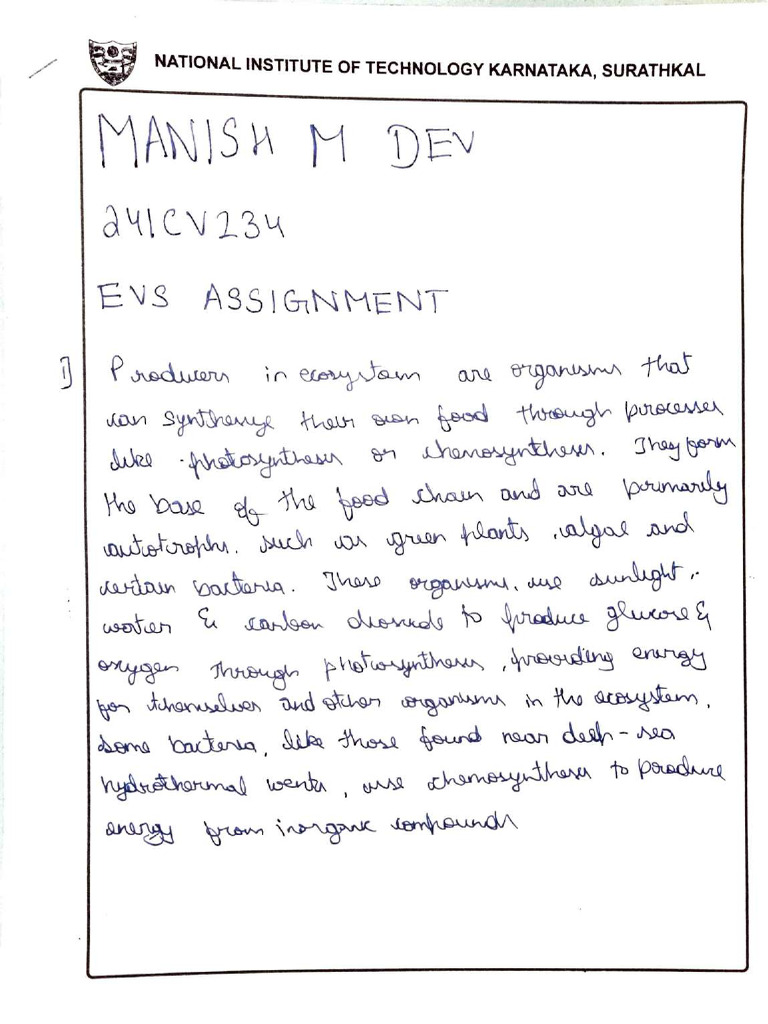 NATIONAL INSTITUTE OF TECHNOLOGY KARNATAKA, SURATHKAL
MANISH M DEV
241CV234
EVS ASSIGNMENT
1) Producers in ecosystem are organisms that
can synthesize their own food through processes
like photosynthesis or chemosynthesis. They form
the base of the food chain and are primarily
autotrophs. such as green plants, algae and
certain bacteria. These organisms, use sunlight,
water & carbon dioxide to produce glucose &
oxygen through photosynthesis, providing energy
for themselves and other organisms in the ecosystem.
Some bacteria, like those found near deep-sea
hydrothermal vents, use chemosynthesis to produce
energy from inorganic compounds